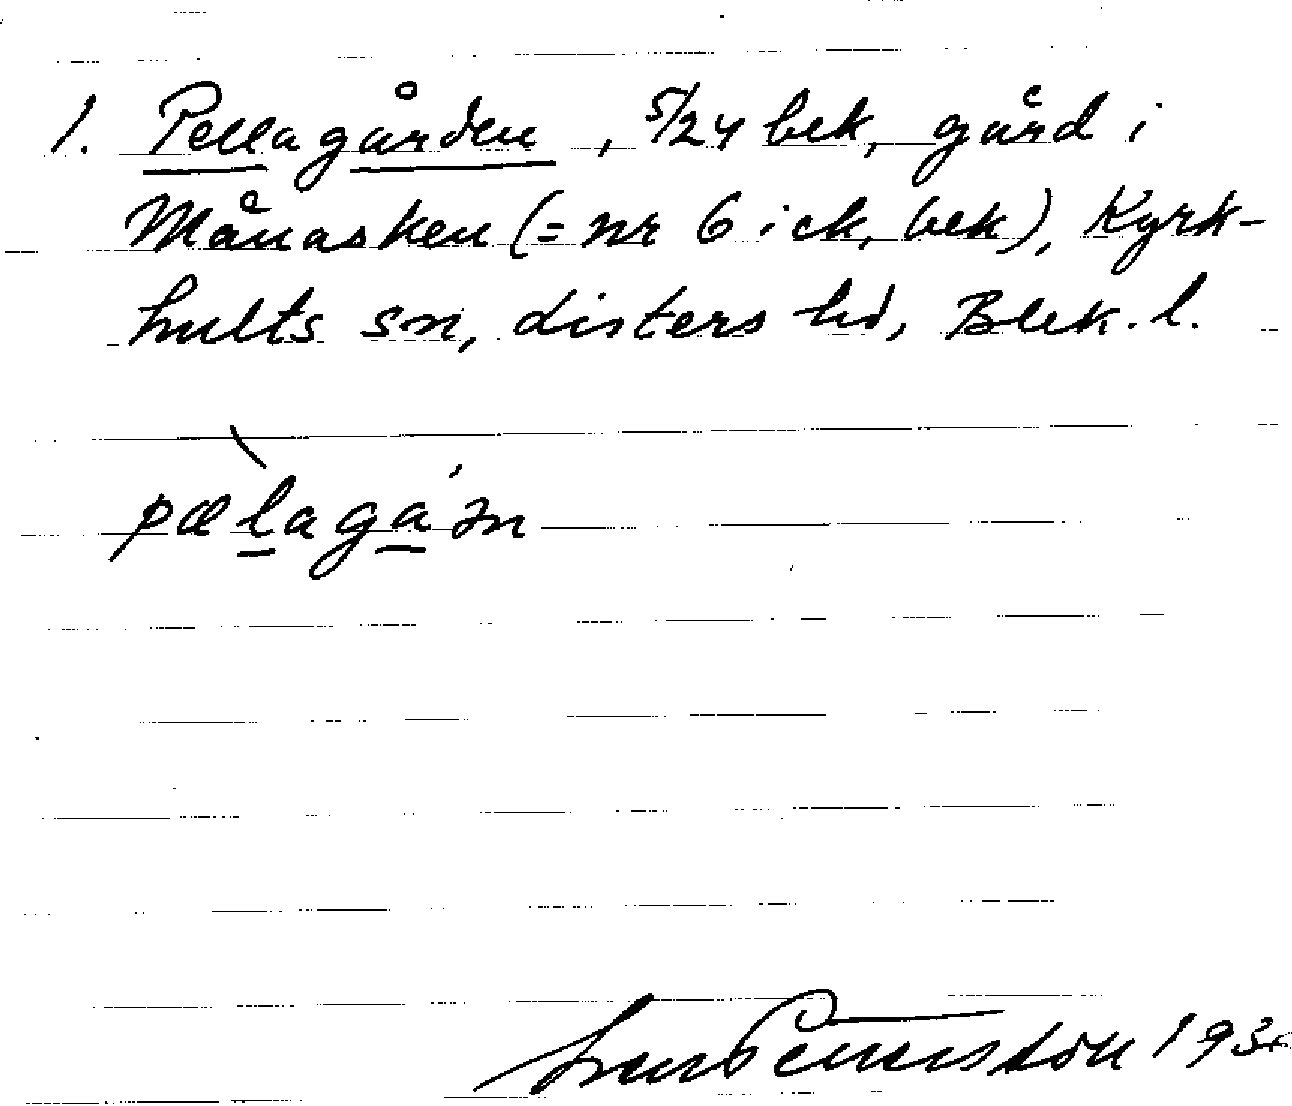 1. Pellagården, 5/24 bek, gård i
Månasken (= nr 6 i ek. bek), Kyrk-
hults sn, Listers hd, Blek. l.
pælagɑ'ɜn